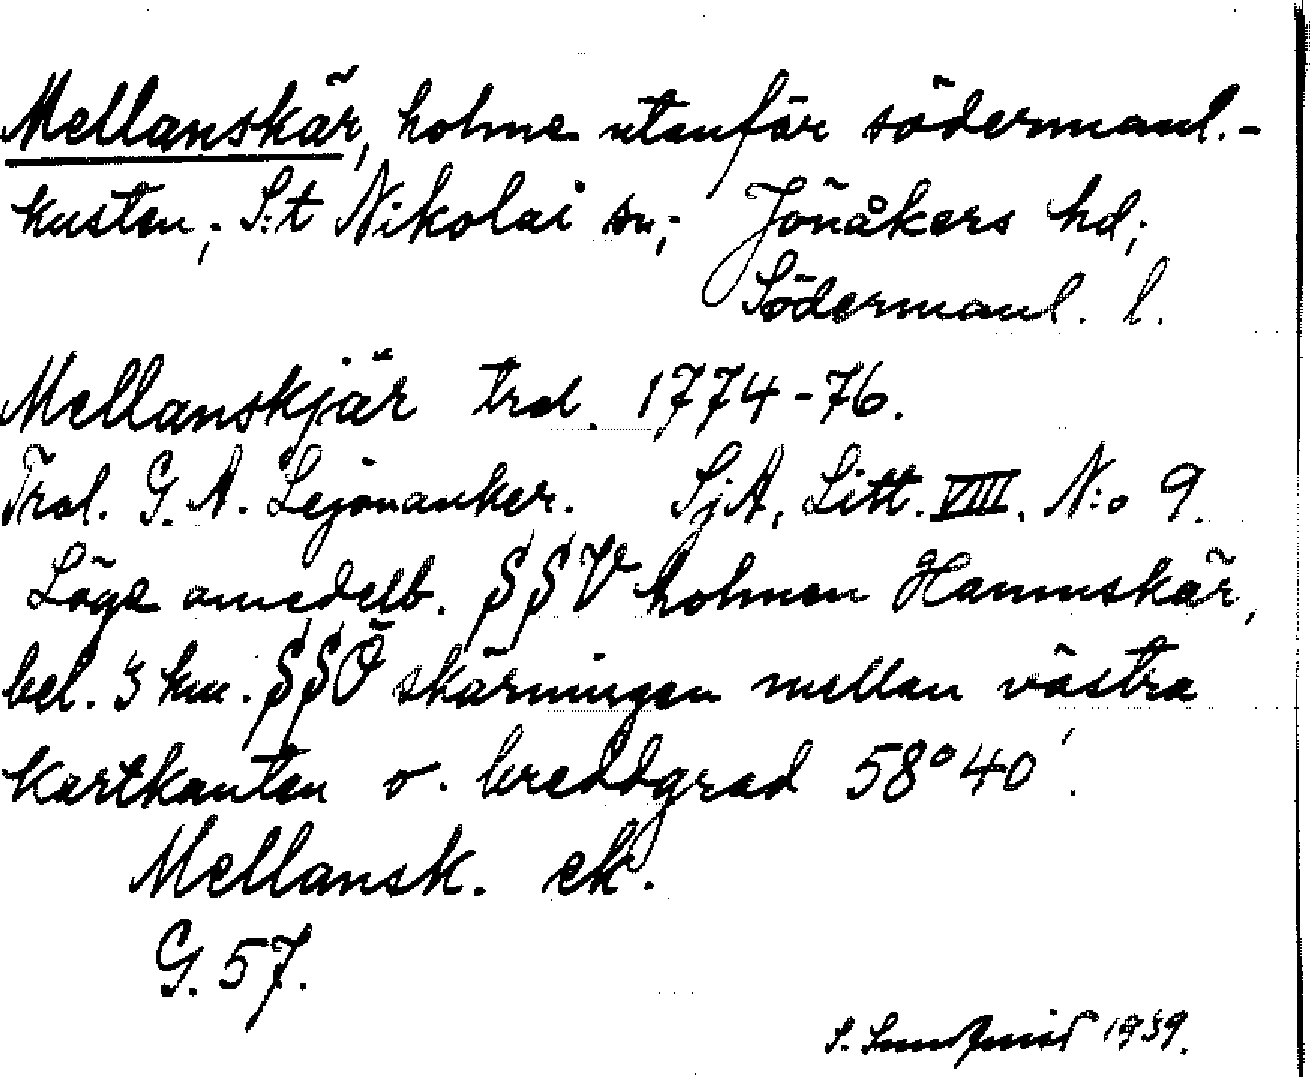 Mellanskär, holme utanför södermanl.-
kusten; S:t Nikolai sn; Jönåkers hd;
Södermanl. l.
Mellanskjär trol. 1774-76.
Trol. G. A. Lejonanker. SjA, Litt. VIII. N:o 9.
Läge omedelb. §§V holmen Hamnskär,
bel. 3 km. §§Ö skärningen mellan västra
kartkanten o. breddgrad 58°40'.
Mellansk. ek.
G. 57.
S. 1939.